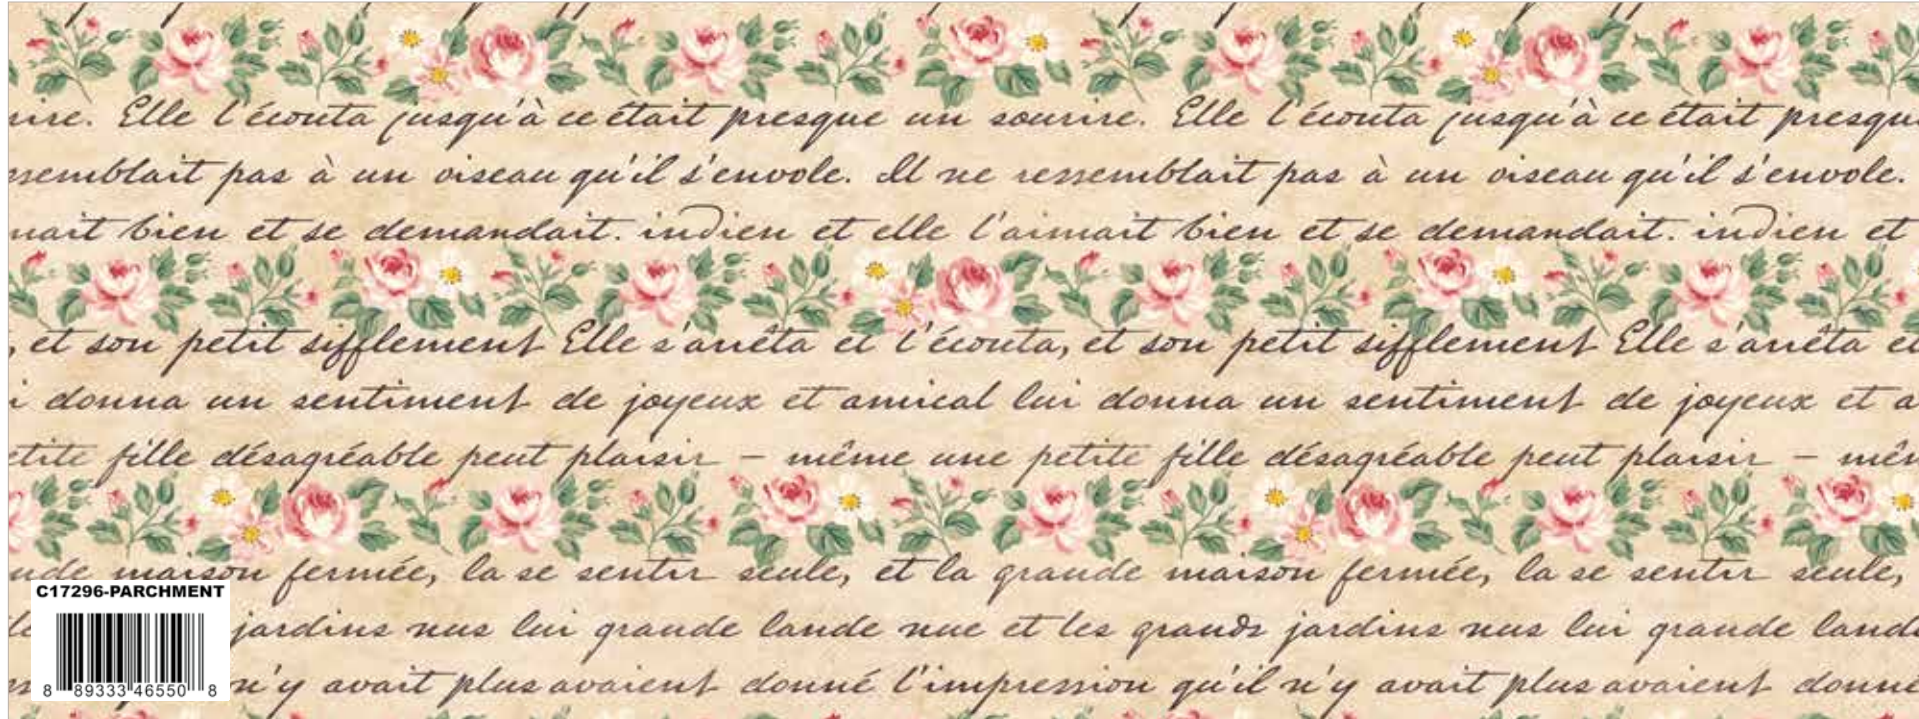 rire. Elle l'écouta jusqu'à ce était presque un sourire. Elle l'écouta jusqu'à ce était presqu
ssemblait pas à un oiseau qu'il s'envole. Il ne ressemblait pas à un oiseau qu'il s'envole.
mait bien et se demandait. indien et elle l'aimait bien et se demandait. indien et
, et son petit sifflement Elle s'arrêta et l'écouta, et son petit sifflement Elle s'arrêta et
i donna un sentiment de joyeux et amical lui donna un sentiment de joyeux et a
etite fille désagréable peut plaisir - même une petite fille désagréable peut plaisir - mêm
nde maison fermée, la se sentir seule, et la grande maison fermée, la se sentir seule,
jardins nus lui grande lande nue et les grands jardins nus lui grande lande
n'y avait plus avaient donné l'impression qu'il n'y avait plus avaient donné
C17296-PARCHMENT
8 89333 46550 8